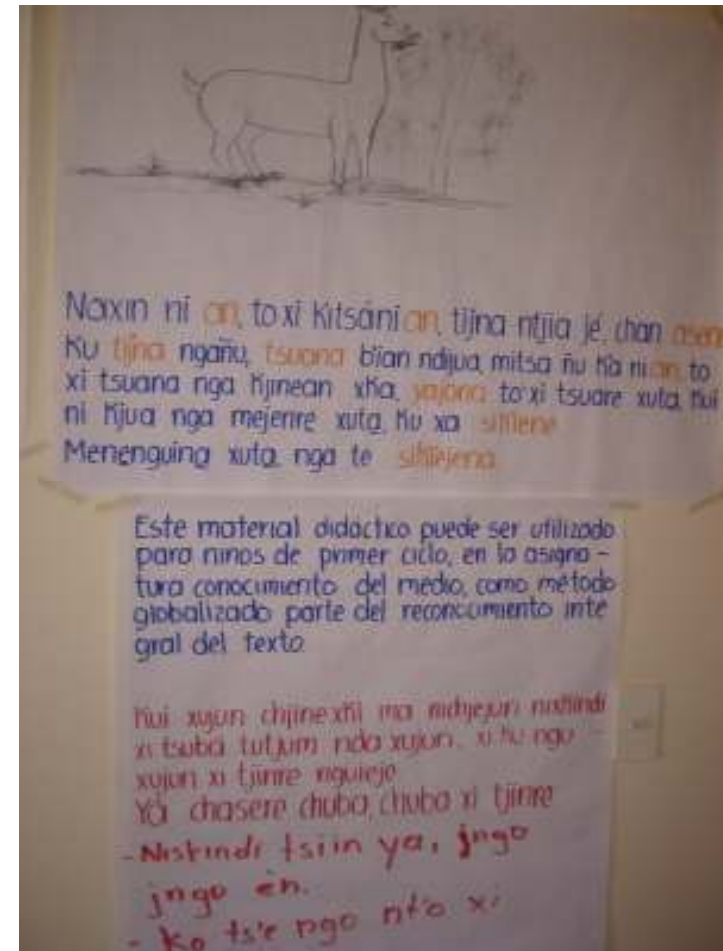 Naxin ni an, to xi kitsáni an, tijna ntjia jé, chan asen
Ku tijna ngañu, tsuana bian ndijua, mitsa ñu ka ni an, to
xi tsuana nga kjinean xka, yajona to xi tsuare xuta. Kui
ni kjua nga mejenre xuta, ku xa
Menenguina xuta, nga te
Este material didáctico puede ser utilizado
para niños de primer ciclo, en la asigna -
tura conocimiento del medio, como método
globalizado parte del reconocimiento inte
gral del texto.
Kui xujun chjinexki ma nichjejun nixtindi
xi tsuba tutjum nda xujun, xi ku ngu
xujun xi tjinre nguieje
Yá chasere chuba, chuba xi tjinre
- Nistindi tsiin ya, jngo
jngo én.
- Ko ts'e ngo nt'o xi